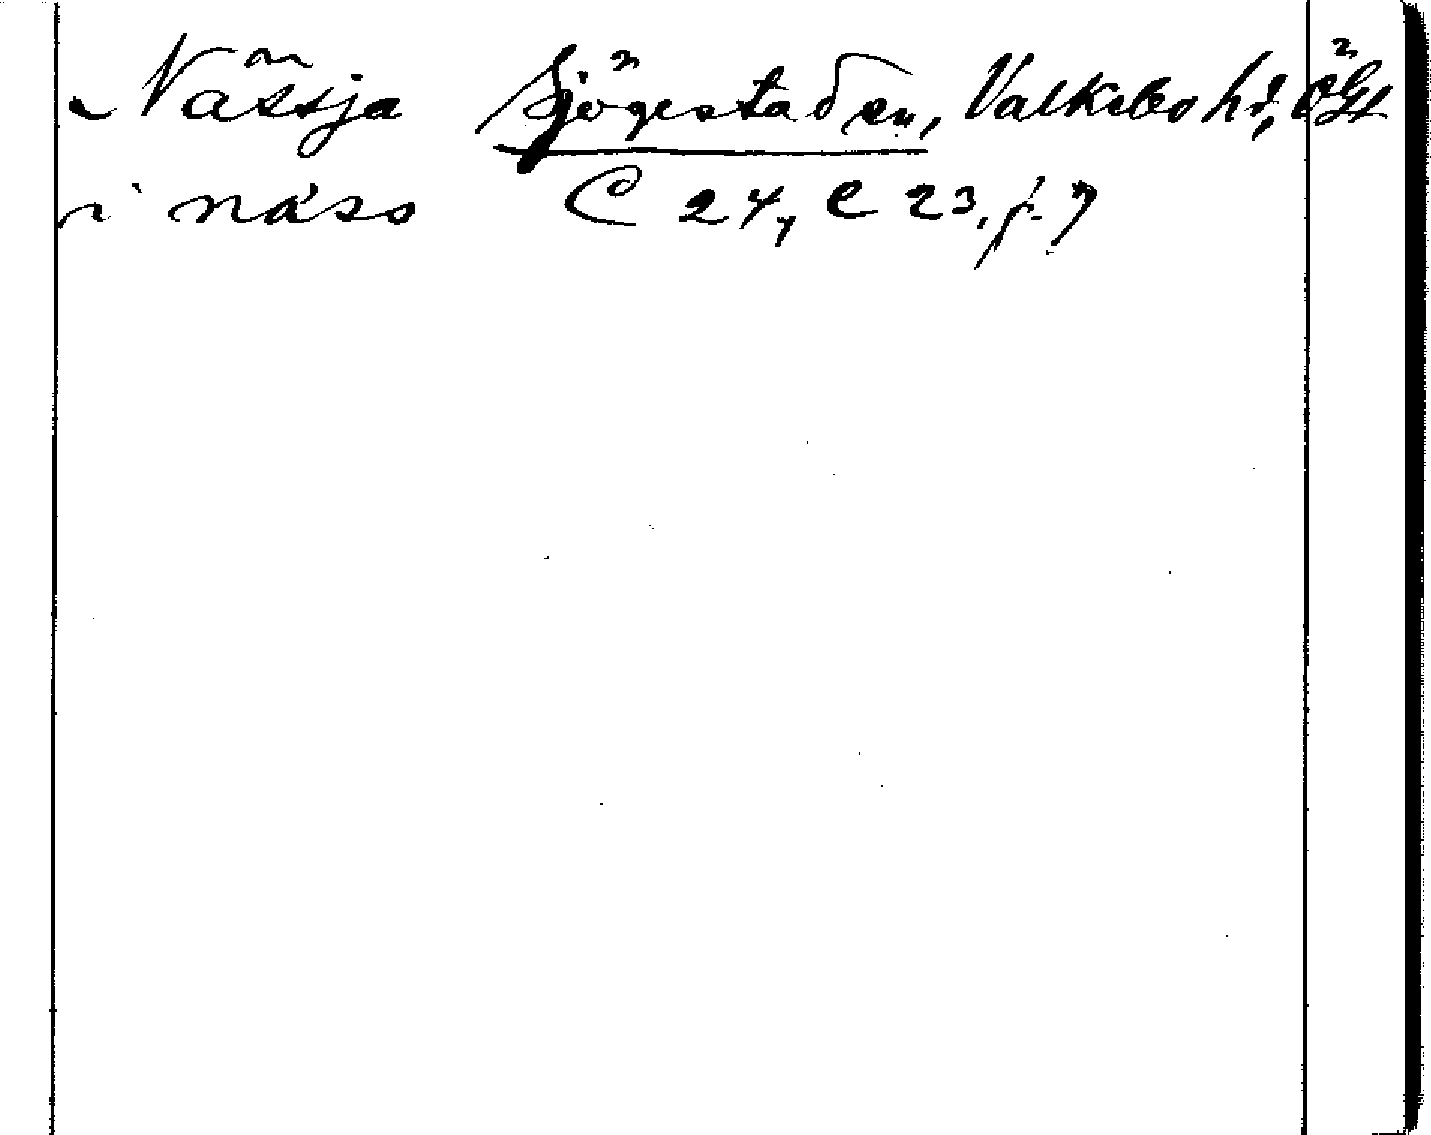 Nässja Sjögestad sn, Valkebo hd, ÖGtl
i näso C 24, C 23, f. 7